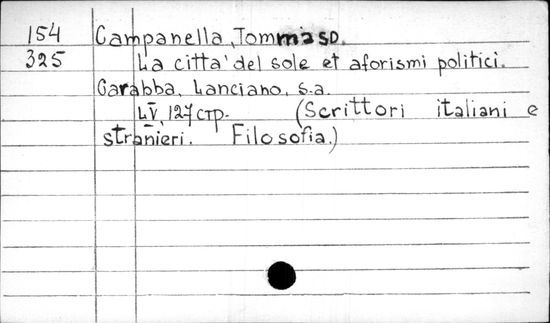 154 Campanella, Tommaso.
325 La citta' del sole et aforismi politici.
Carabba, Lanciano, s.a.
LV, 127 стр. (Scrittori italiani e
stranieri. Filosofia.)